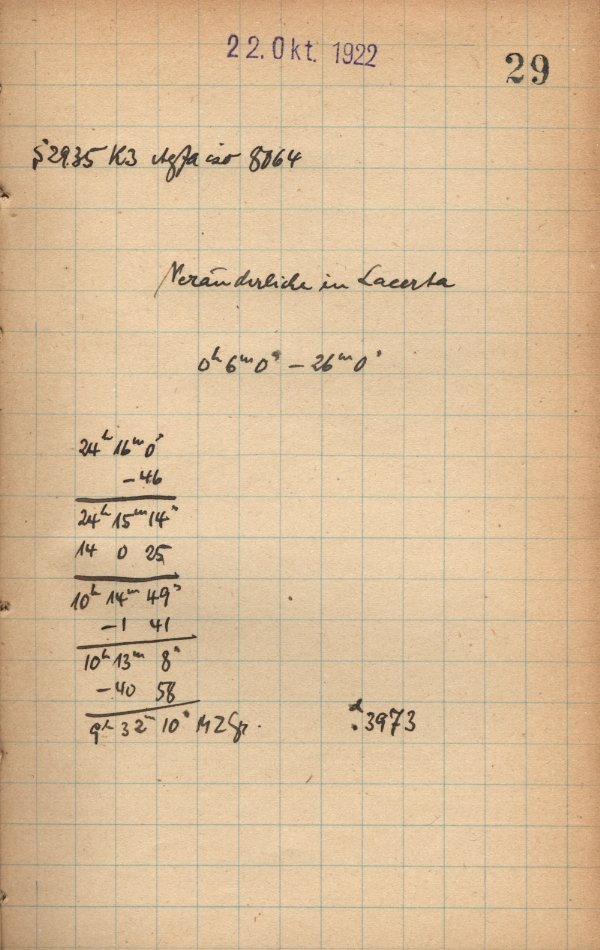 22. Okt. 1922
29
S2935 K3 Agfa iso 8064
Veränderliche in Lacerta
0ʰ 6ᵐ 0ˢ – 26ᵐ 0ˢ
24ʰ 16ᵐ 0ˢ
– 46
24ʰ 15ᵐ 14ˢ
14 0 25
10ʰ 14ᵐ 49ˢ
–1 41
10ʰ 13ᵐ 8ˢ
–40 58
9ʰ 32ᵐ 10ˢ MZGr. ᵈ.3973